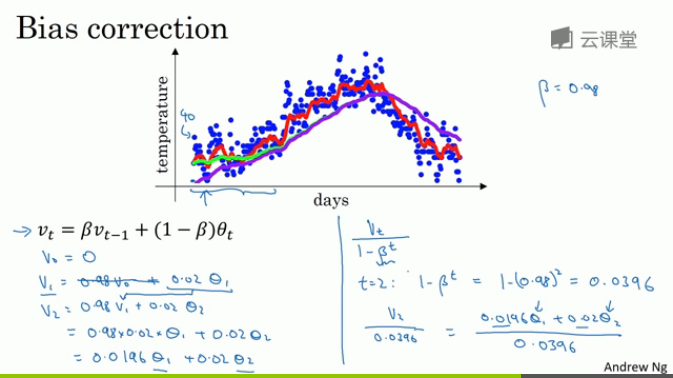 Bias correction
云课堂
β = 0.98
40
temperature
days
→ v_t = βv_{t−1} + (1 − β)θ_t
V_0 = 0
V_1 = 0.98 V_0 + 0.02 θ_1
V_2 = 0.98 V_1 + 0.02 θ_2
= 0.98 × 0.02 × θ_1 + 0.02 θ_2
= 0.0196 θ_1 + 0.02 θ_2
V_t
1 − β^t
t=2: 1 − β^t = 1 − (0.98)^2 = 0.0396
V_2 / 0.0396 = (0.0196 θ_1 + 0.02 θ_2) / 0.0396
Andrew Ng